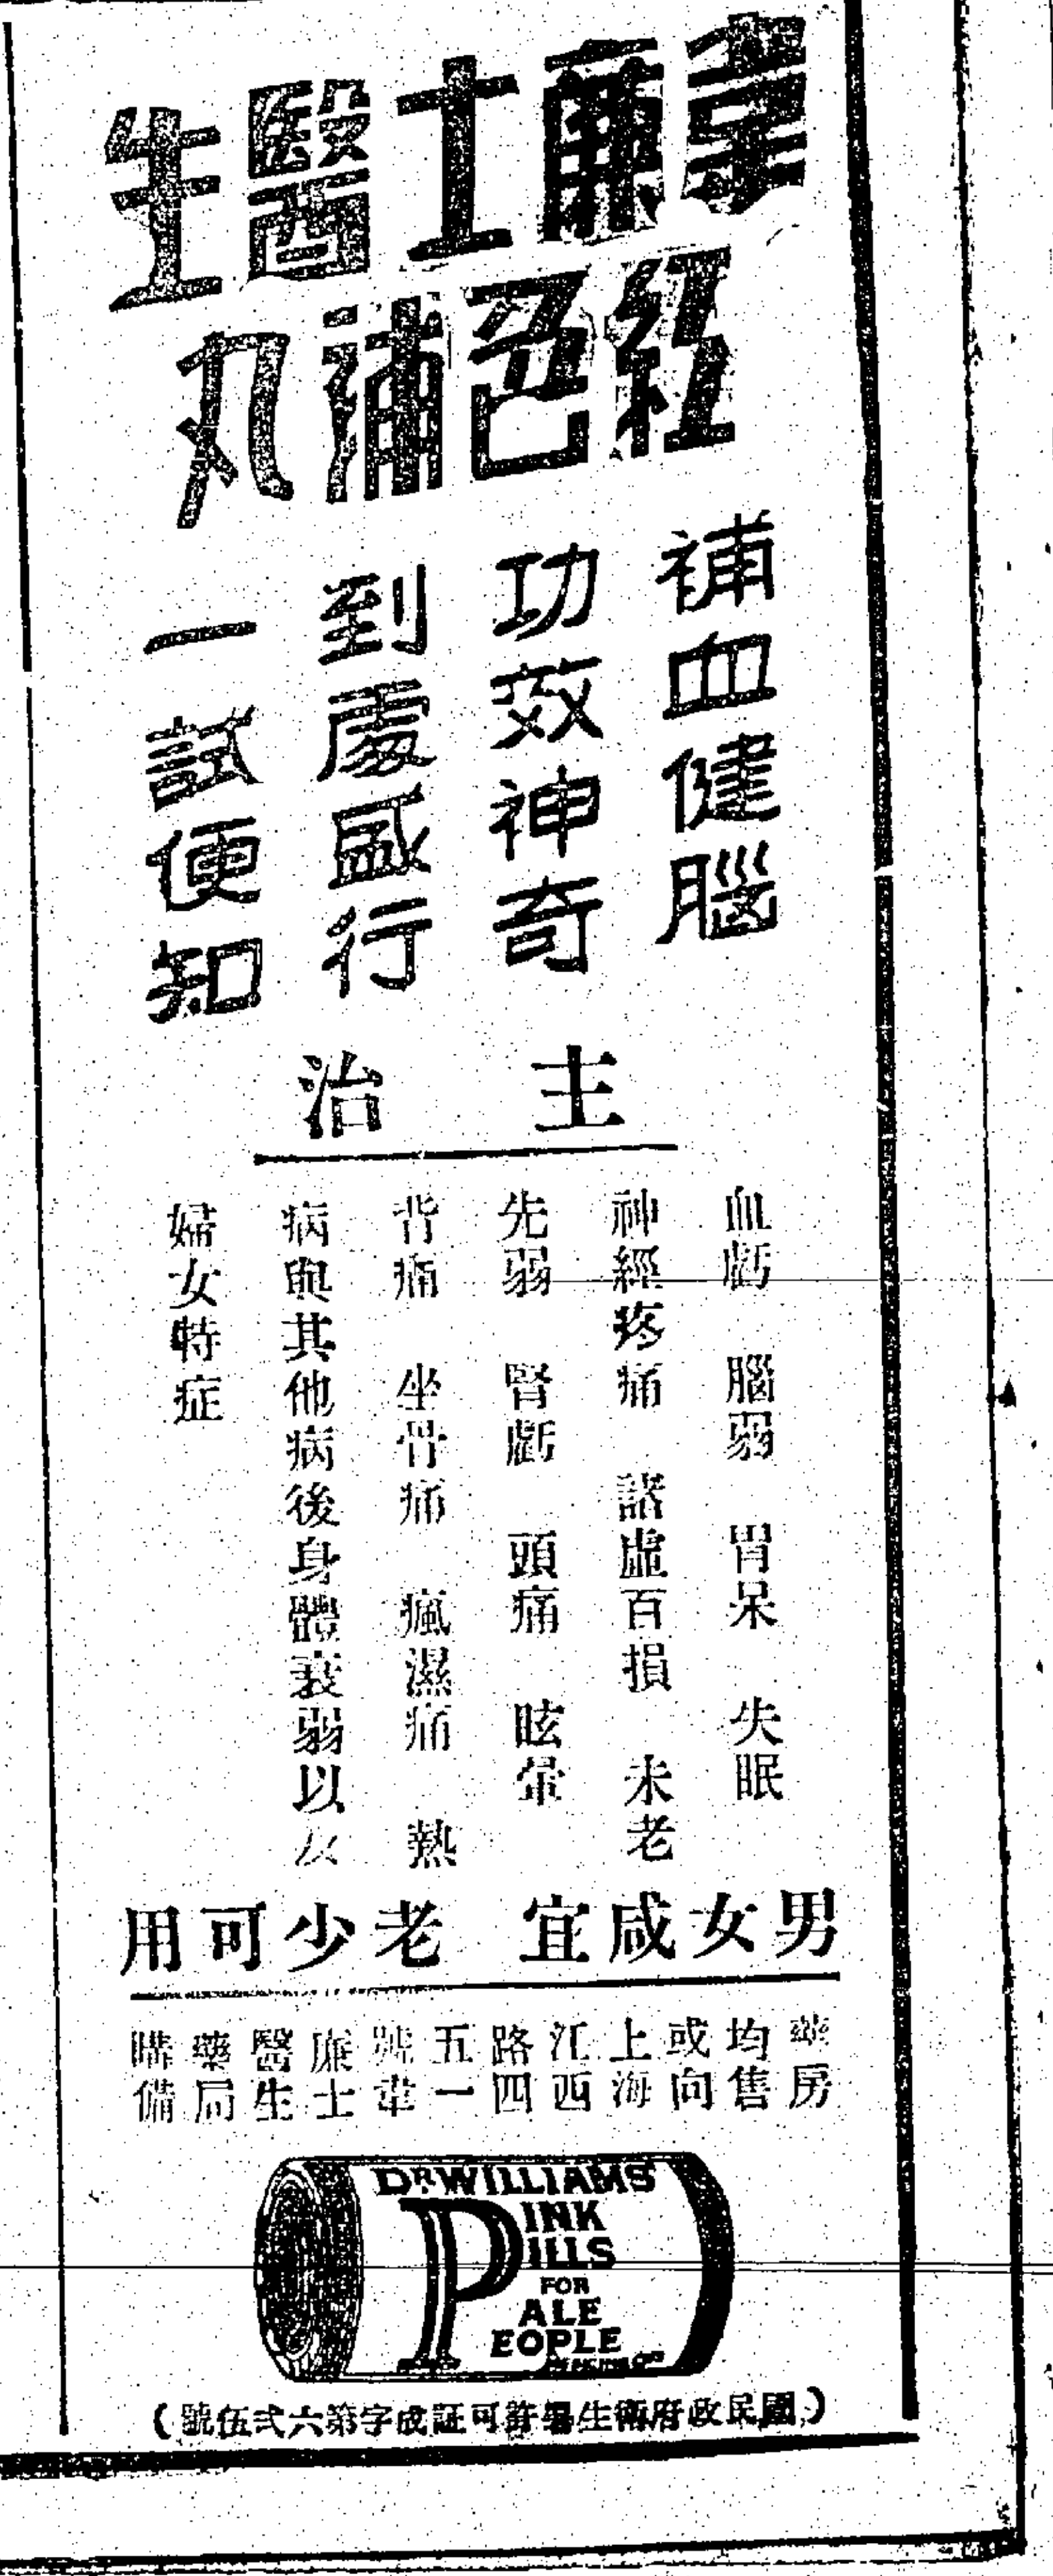 韋廉士醫生
紅色補丸
補血健腦
功效神奇
到處盛行
一試便知
主治
血虧 腦弱 胃呆 失眠
神經疼痛 諸虛百損 未老
先弱 腎虧 頭痛 眩暈
背痛 坐骨痛 瘋濕痛 熱
病與其他病後身體衰弱以及
婦女特症
男女咸宜 老少可用
藥房
均售
或向
上海
江西
路四
五一
號韋
廉士
醫生
藥局
購備
DR WILLIAMS
PINK
PILLS
FOR
PALE
PEOPLE
(國民政府衛生署許可証成字第六弍伍號)